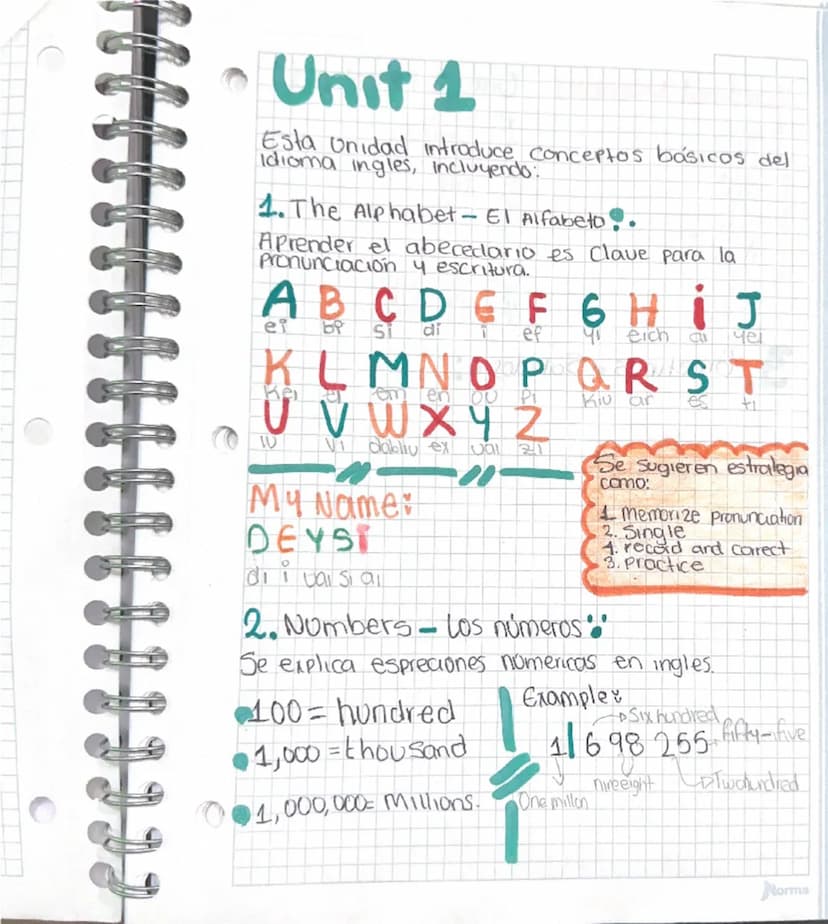 Unit 1
Esta Unidad introduce conceptos básicos del
idioma ingles, incluyendo:
1. The Alphabet - El Alfabeto
Aprender el abecedario es clave para la
pronunciación y escritura.
A B C D E F G H i J
ei bi si di i ef yi eich ai yei
K L M N O P Q R S T
kei el em en ou pi kiu ar es ti
U V W X Y Z
iu vi dabliu ex uai zi
Se sugieren estrategia
como:
1. Memorize pronunciation
2. Single
4. record and correct
3. practice
My Name:
DEYSi
di i uai si ai
2. Numbers - Los números
Se explica espreciones númericas en ingles.
100 = hundred
1,000 = thousand
1,000,000 = Millions.
Example:
Six hundred
1 698 255 fifty-five
nineeight Two hundred
One millon
Norma